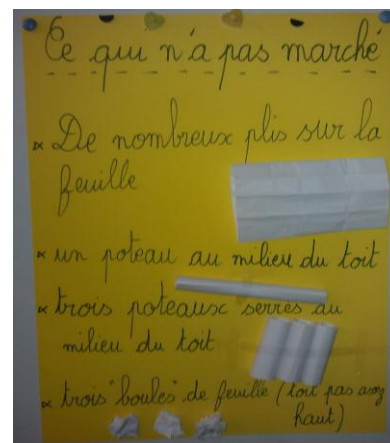 Ce qui n'a pas marché
× De nombreux plis sur la
feuille
× un poteau au milieu du toit
× trois poteaux serrés au
milieu du toit
× trois "boules" de feuille (toit pas assez
haut)